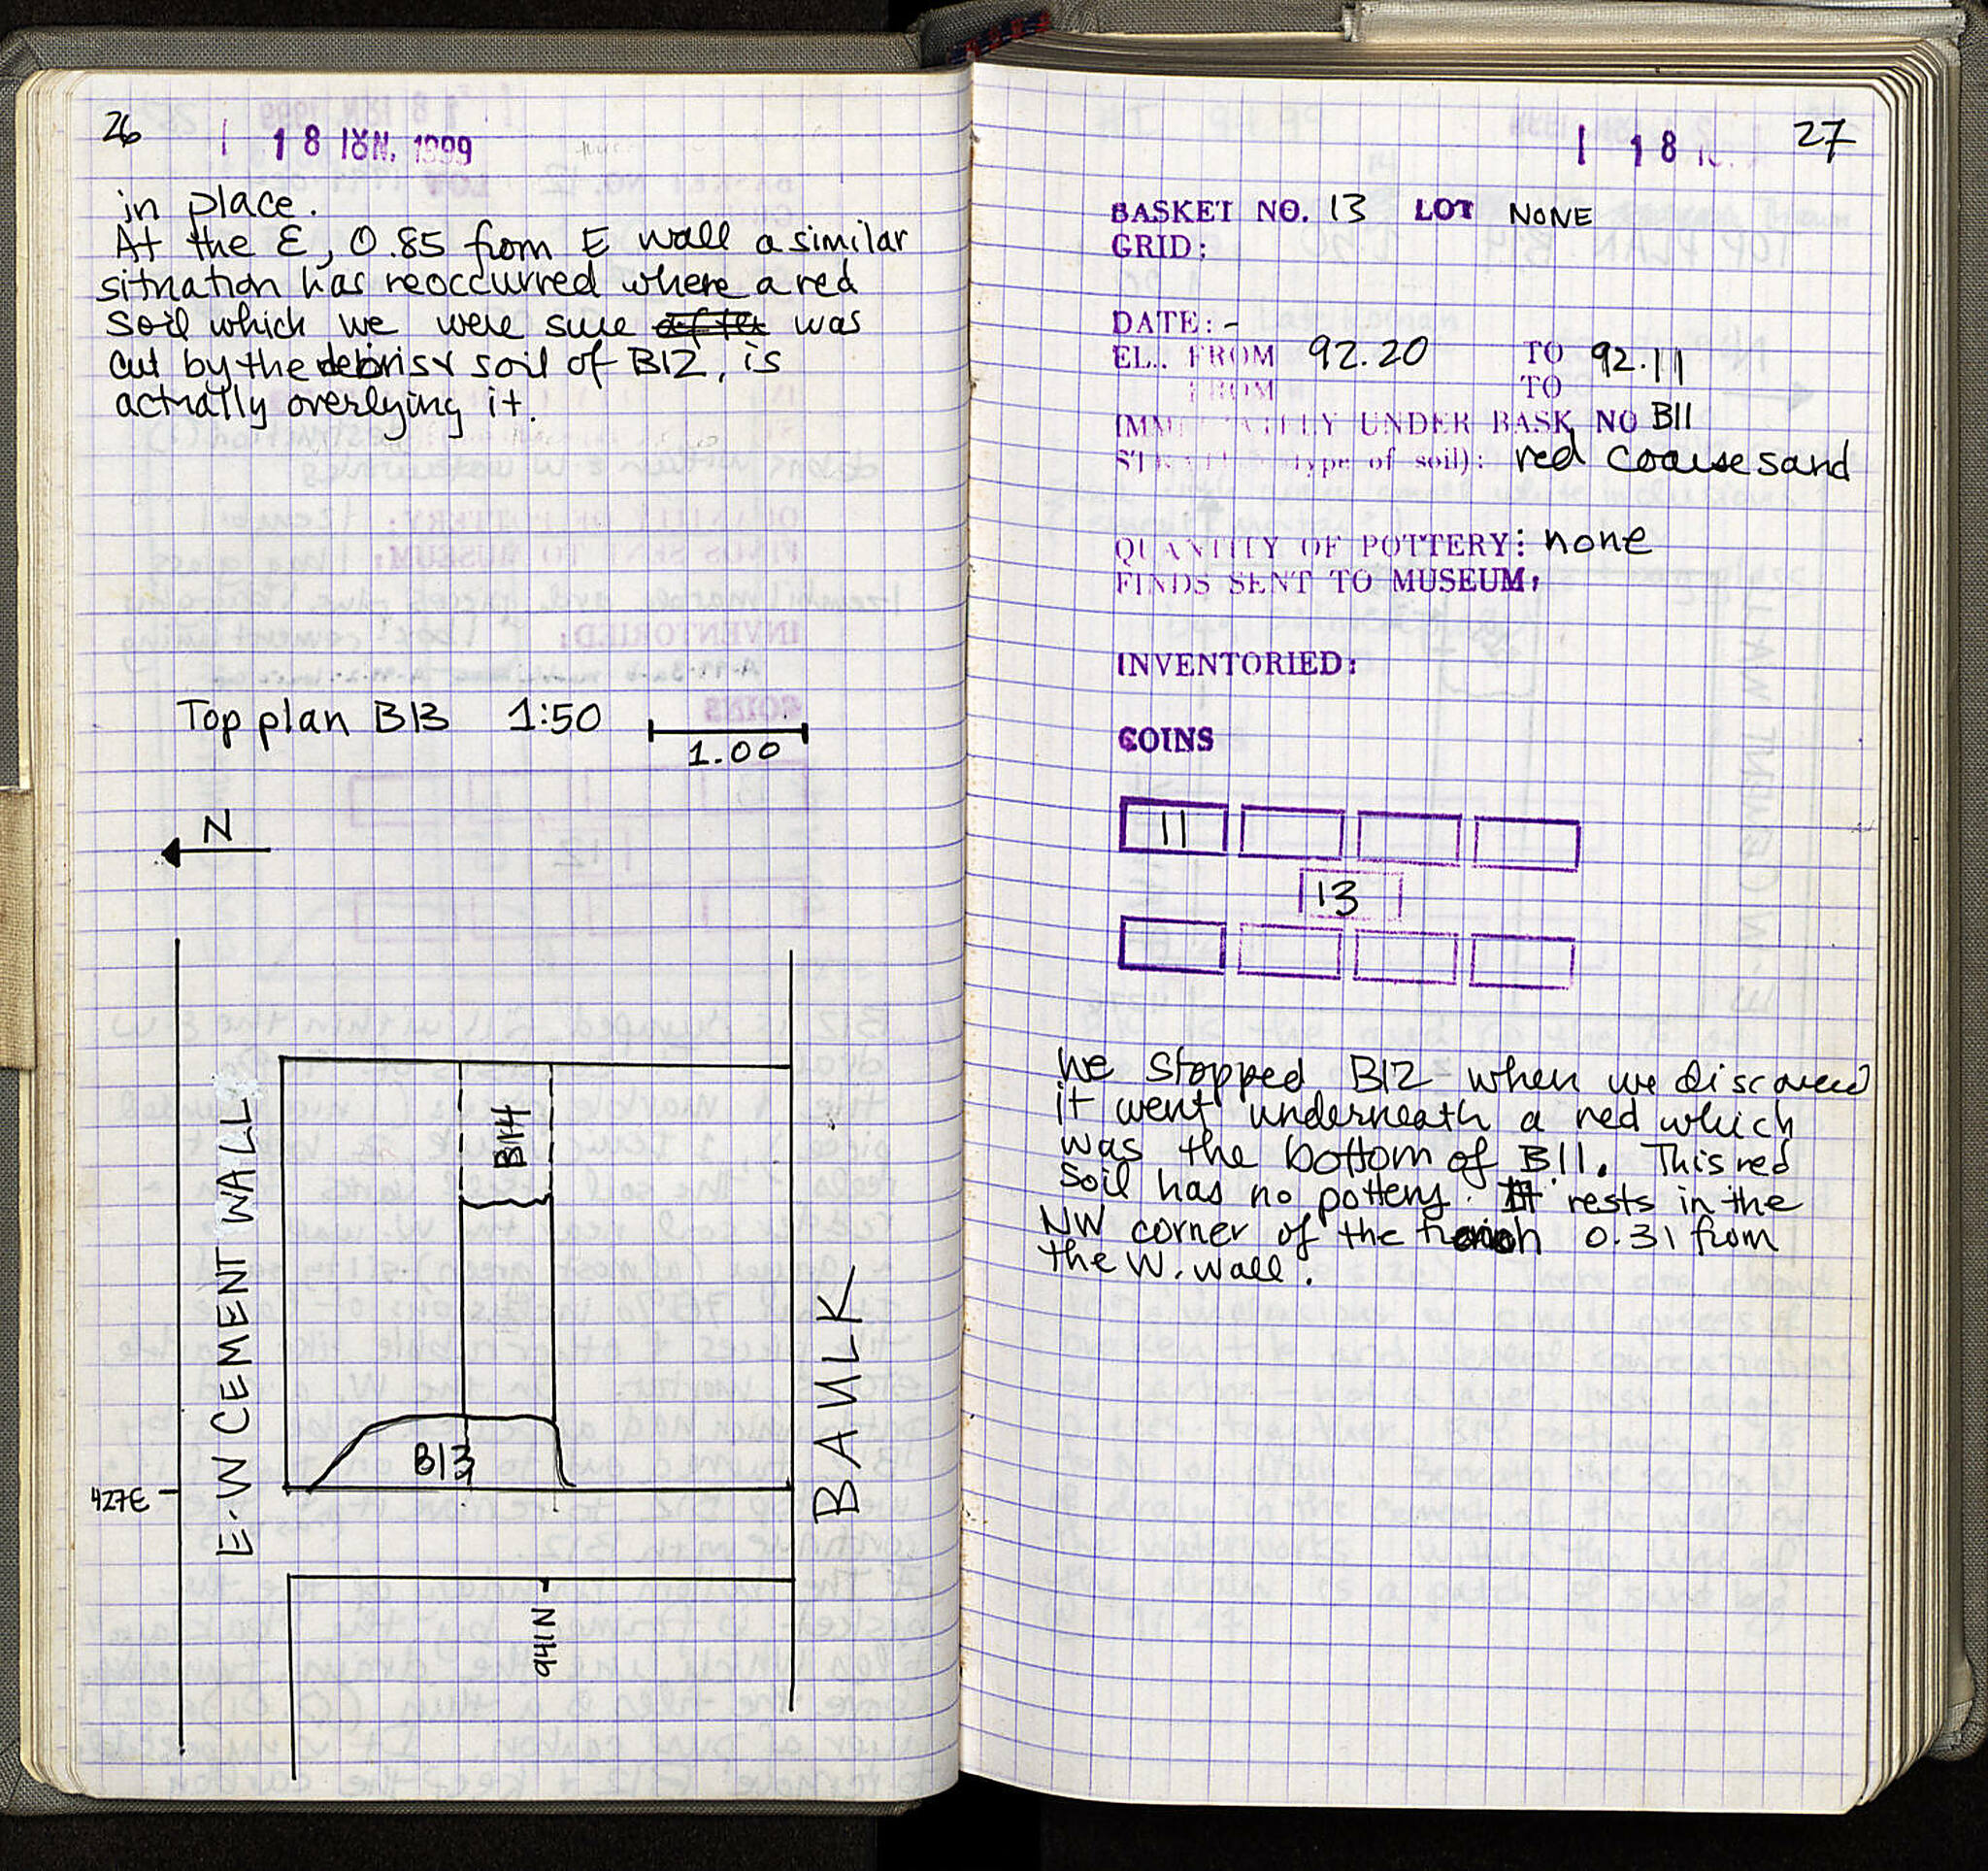 26
18 IΟΥΝ. 1999
in place.
At the E, 0.85 from E wall a similar
situation has reoccurred where a red
soil which we were sure after was
cut by the debris & soil of B12, is
actually overlying it.
Top plan B13 1:50
1.00
N
E-W CEMENT WALL
B14
BAULK
B13
427E
941N
27
18
BASKET NO. 13 LOT NONE
GRID:
DATE: -
EL. FROM 92.20 TO 92.11
FROM TO
IMMEDIATELY UNDER BASK NO B11
(type of soil): red coarse sand
QUANTITY OF POTTERY: none
FINDS SENT TO MUSEUM:
INVENTORIED:
COINS
11
13
we stopped B12 when we discovered
it went underneath a red which
was the bottom of B11. This red
soil has no pottery. It rests in the
NW corner of the trench 0.31 from
the W. wall.